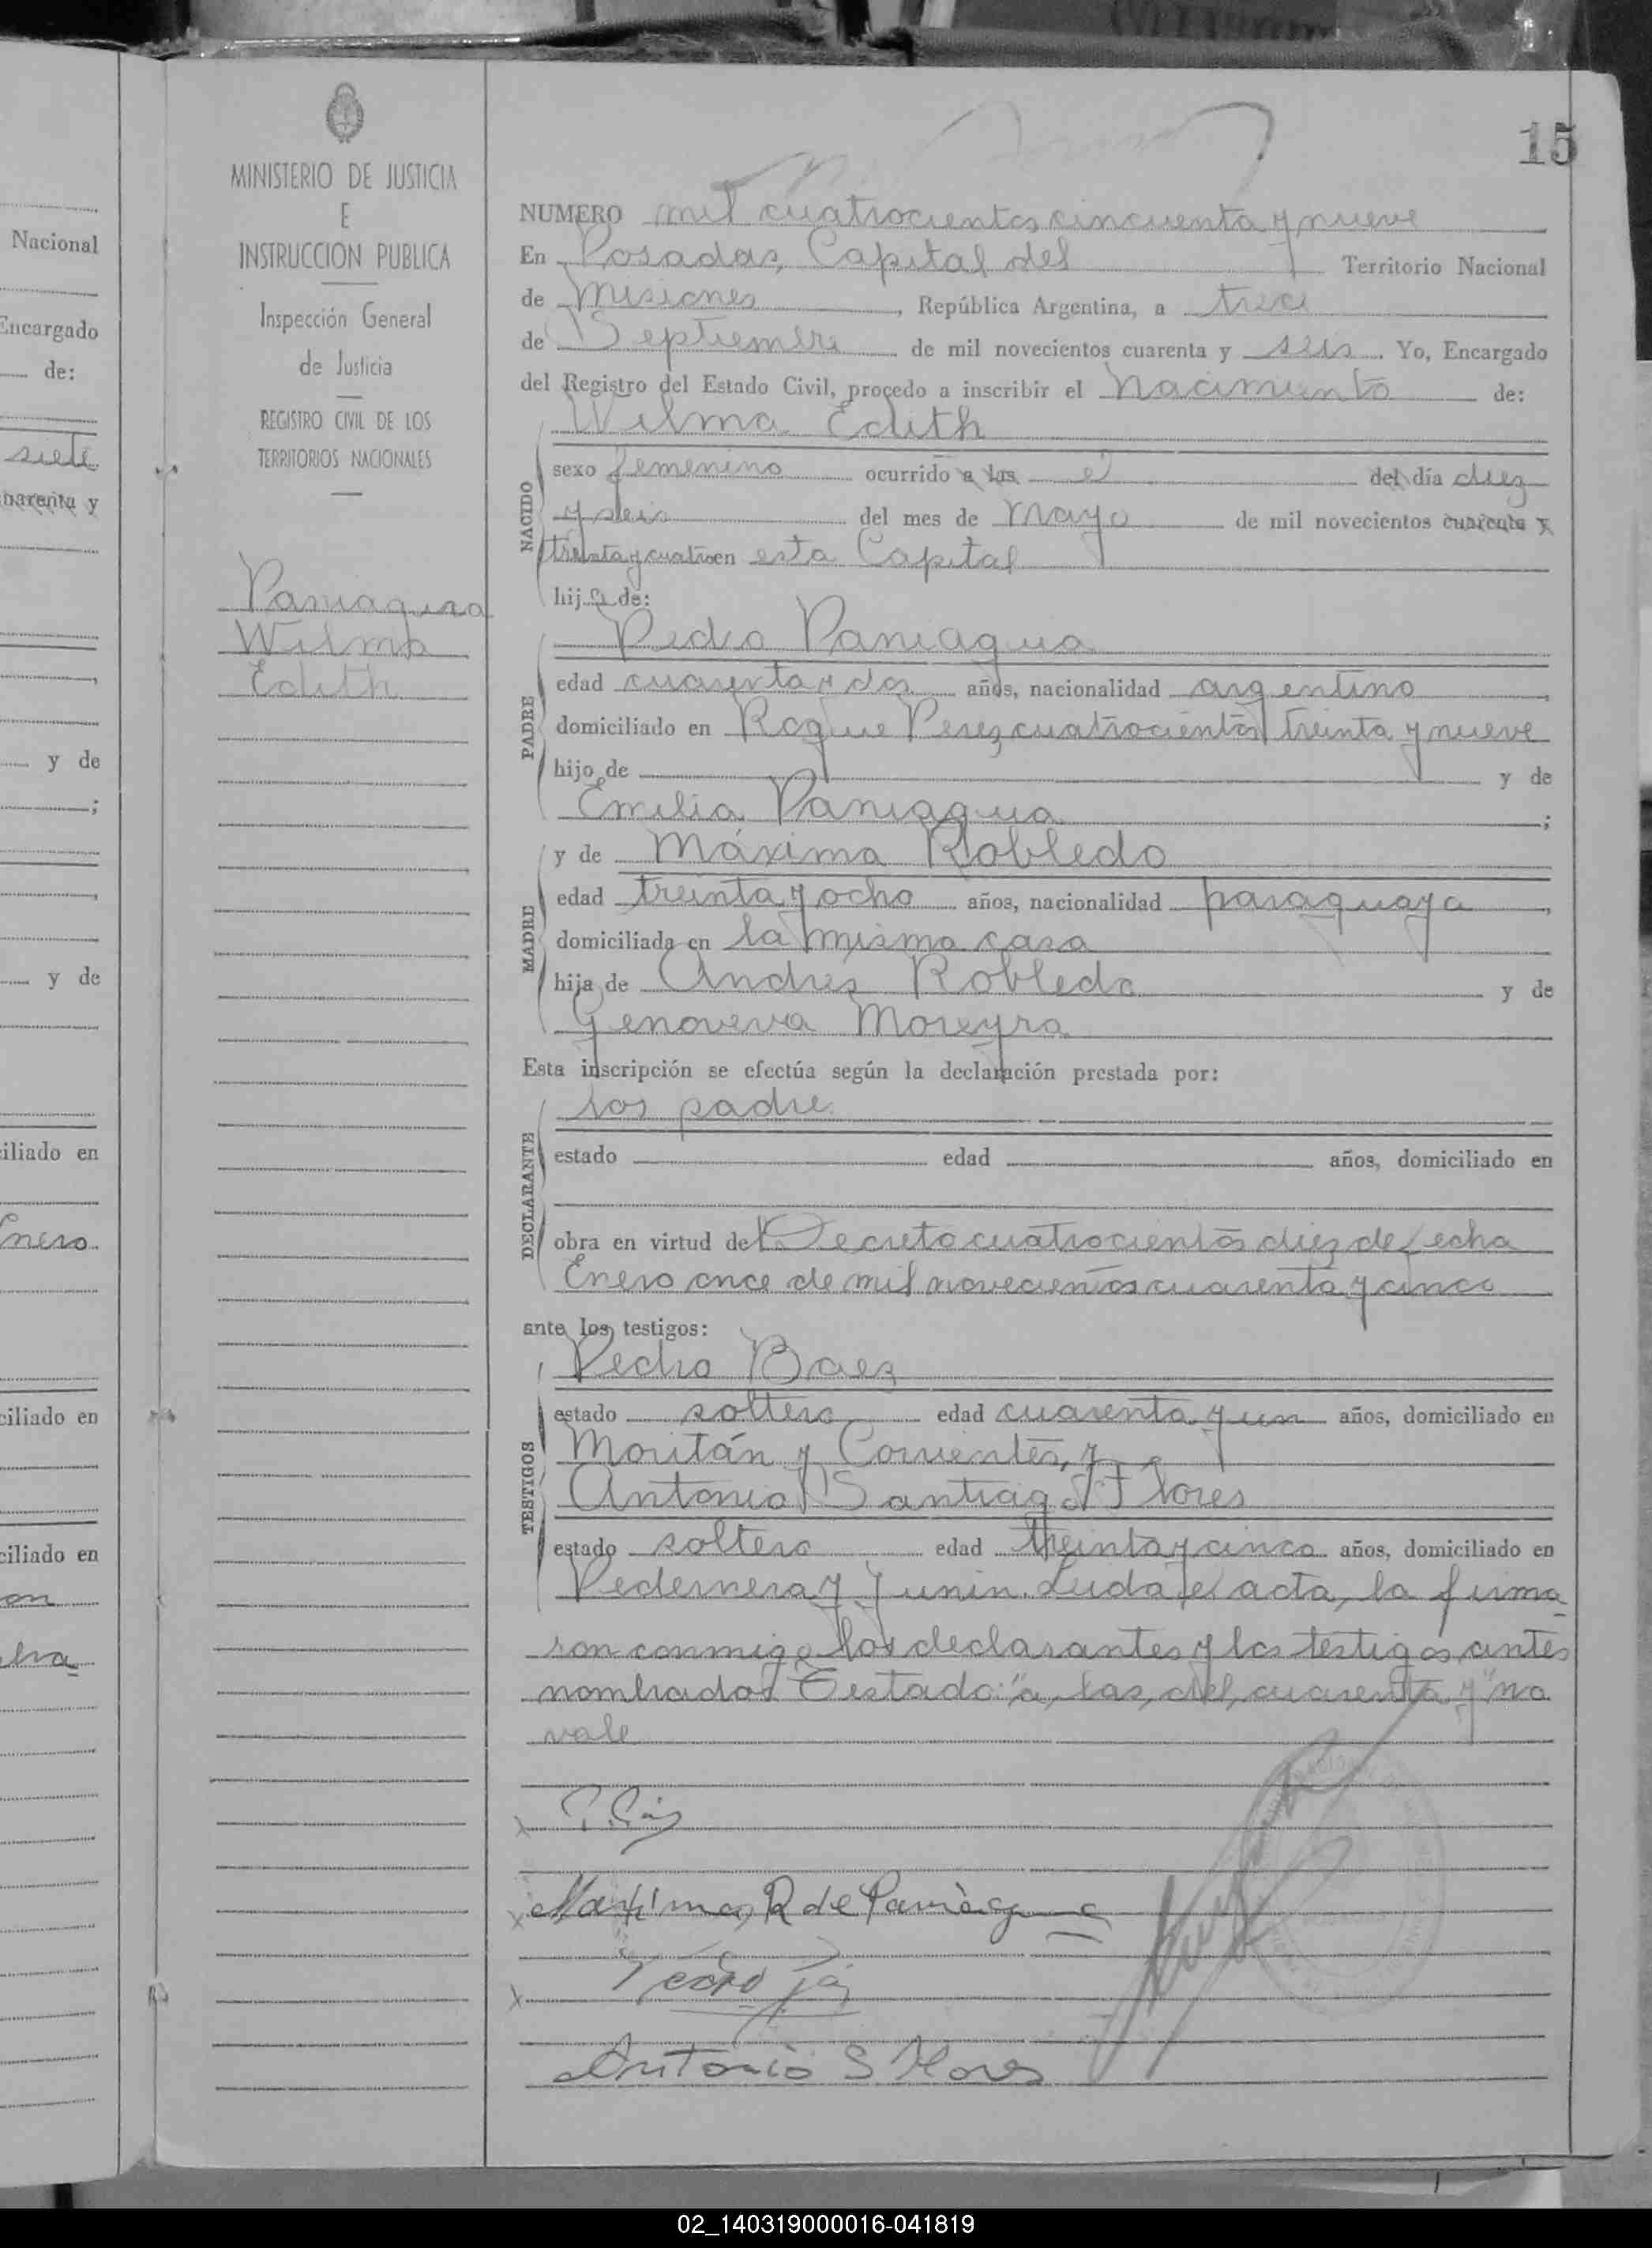 15
MINISTERIO DE JUSTICIA
E
INSTRUCCION PUBLICA
Inspección General
de Justicia
REGISTRO CIVIL DE LOS
TERRITORIOS NACIONALES
Paniagua
Wilma
Edith
NUMERO mil cuatrocientos cincuenta y nueve
En Posadas, Capital del Territorio Nacional
de Misiones, República Argentina, a trece
de Septiembre de mil novecientos cuarenta y seis. Yo, Encargado
del Registro del Estado Civil, procedo a inscribir el Nacimiento de:
Wilma Edith
NACIDO
sexo femenino ocurrido a las el del día diez
y seis del mes de Mayo de mil novecientos cuarenta y
treinta y cuatro en esta Capital
hija de:
Pedro Paniagua
PADRE
edad cuarenta y dos años, nacionalidad argentino,
domiciliado en Roque Perez cuatrocientos treinta y nueve
hijo de y de
Emilia Paniagua;
y de Máxima Robledo
MADRE
edad treinta y ocho años, nacionalidad paraguaya,
domiciliada en la misma casa
hija de Andres Robledo y de
Genoveva Moreyra
Esta inscripción se efectúa según la declaración prestada por:
los padre
DECLARANTE
estado edad años, domiciliado en
obra en virtud del Decreto cuatrocientos diez de fecha
Enero once de mil novecientos cuarenta y cinco
ante los testigos:
Pedro Baez
TESTIGOS
estado soltero edad cuarenta y un años, domiciliado en
Moritán y Corrientes, y
Antonio Santiago Flores
estado soltero edad treinta y cinco años, domiciliado en
Pedernera y Junin. Leida el acta, la firma
ron conmigo los declarantes y los testigos antes
nombrados Testado: "a, las, del, cuarenta y" no
vale
Maxima R de Paniagua
Antonio S Flores
Nacional
Encargado
de:
siete
cuarenta y
y de
;
y de
ciliado en
Enero
ciliado en
ciliado en
02_140319000016-041819